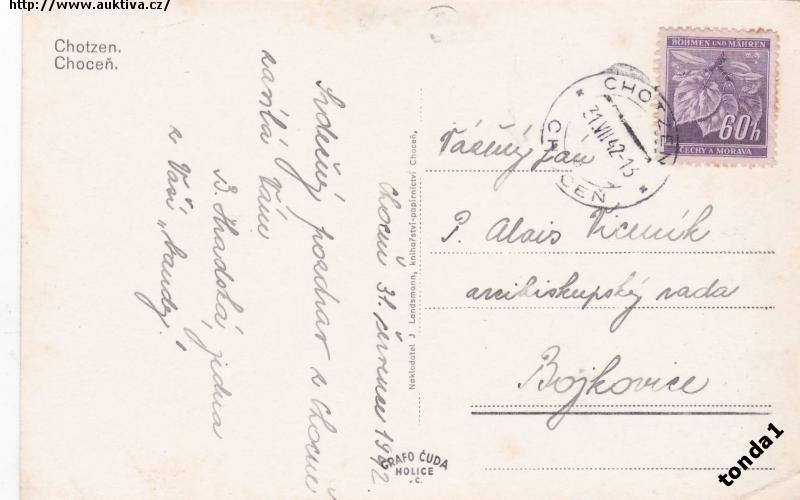 http://www.auktiva.cz/
Chotzen.
Choceň.
Srdečný pozdrav z Chocně
zasílá Vám
B. Hradská, jedna
z Vaší „bandy“!
Choceň 31. července 1942.
Nakladatel J. Landsmann, knihařství-papírnictví Choceň.
GRAFO ČUDA
HOLICE
BÖHMEN UND MÄHREN
60h
ČECHY A MORAVA
CHOTZEN
31.VII.42-15
CHOCEŇ
Vážený pan
P. Alois Viceník
arcibiskupský rada
Bojkovice
tonda1